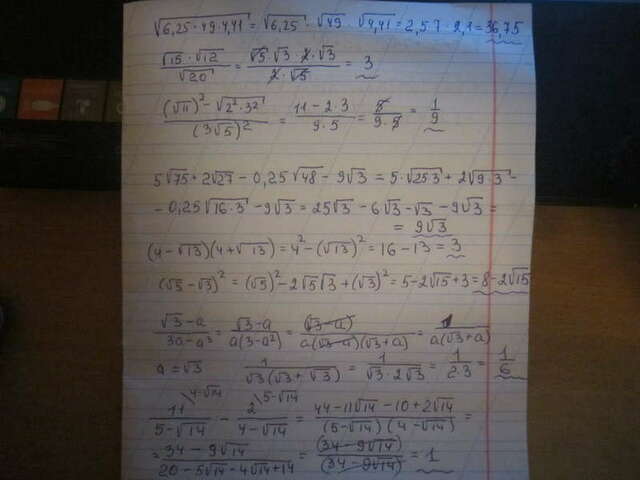 √6,25·49·4,41 = √6,25 · √49 · √4,41 = 2,5·7·2,1 = 36,75
√15·√12/√20 = √5·√3·2·√3/2·√5 = 3
(√11)² - √2²·3²/(3√5)² = 11-2·3/9·5 = 5/9·5 = 1/9
5√75 + 2√27 - 0,25√48 - 9√3 = 5·√25·3 + 2√9·3 -
- 0,25√16·3 - 9√3 = 25√3 - 6√3 - √3 - 9√3 =
= 9√3
(4-√13)(4+√13) = 4² - (√13)² = 16 - 13 = 3
(√5 - √3)² = (√5)² - 2√5√3 + (√3)² = 5 - 2√15 + 3 = 8 - 2√15
√3-a/3a-a³ = √3-a/a(3-a²) = (√3-a)/a(√3-a)(√3+a) = 1/a(√3+a)
a = √3 1/√3(√3+√3) = 1/√3·2√3 = 1/2·3 = 1/6
4-√14 5-√14
11/5-√14 - 2/4-√14 = 44-11√14-10+2√14/(5-√14)(4-√14) =
= 34-9√14/20-5√14-4√14+14 = (34-9√14)/(34-9√14) = 1